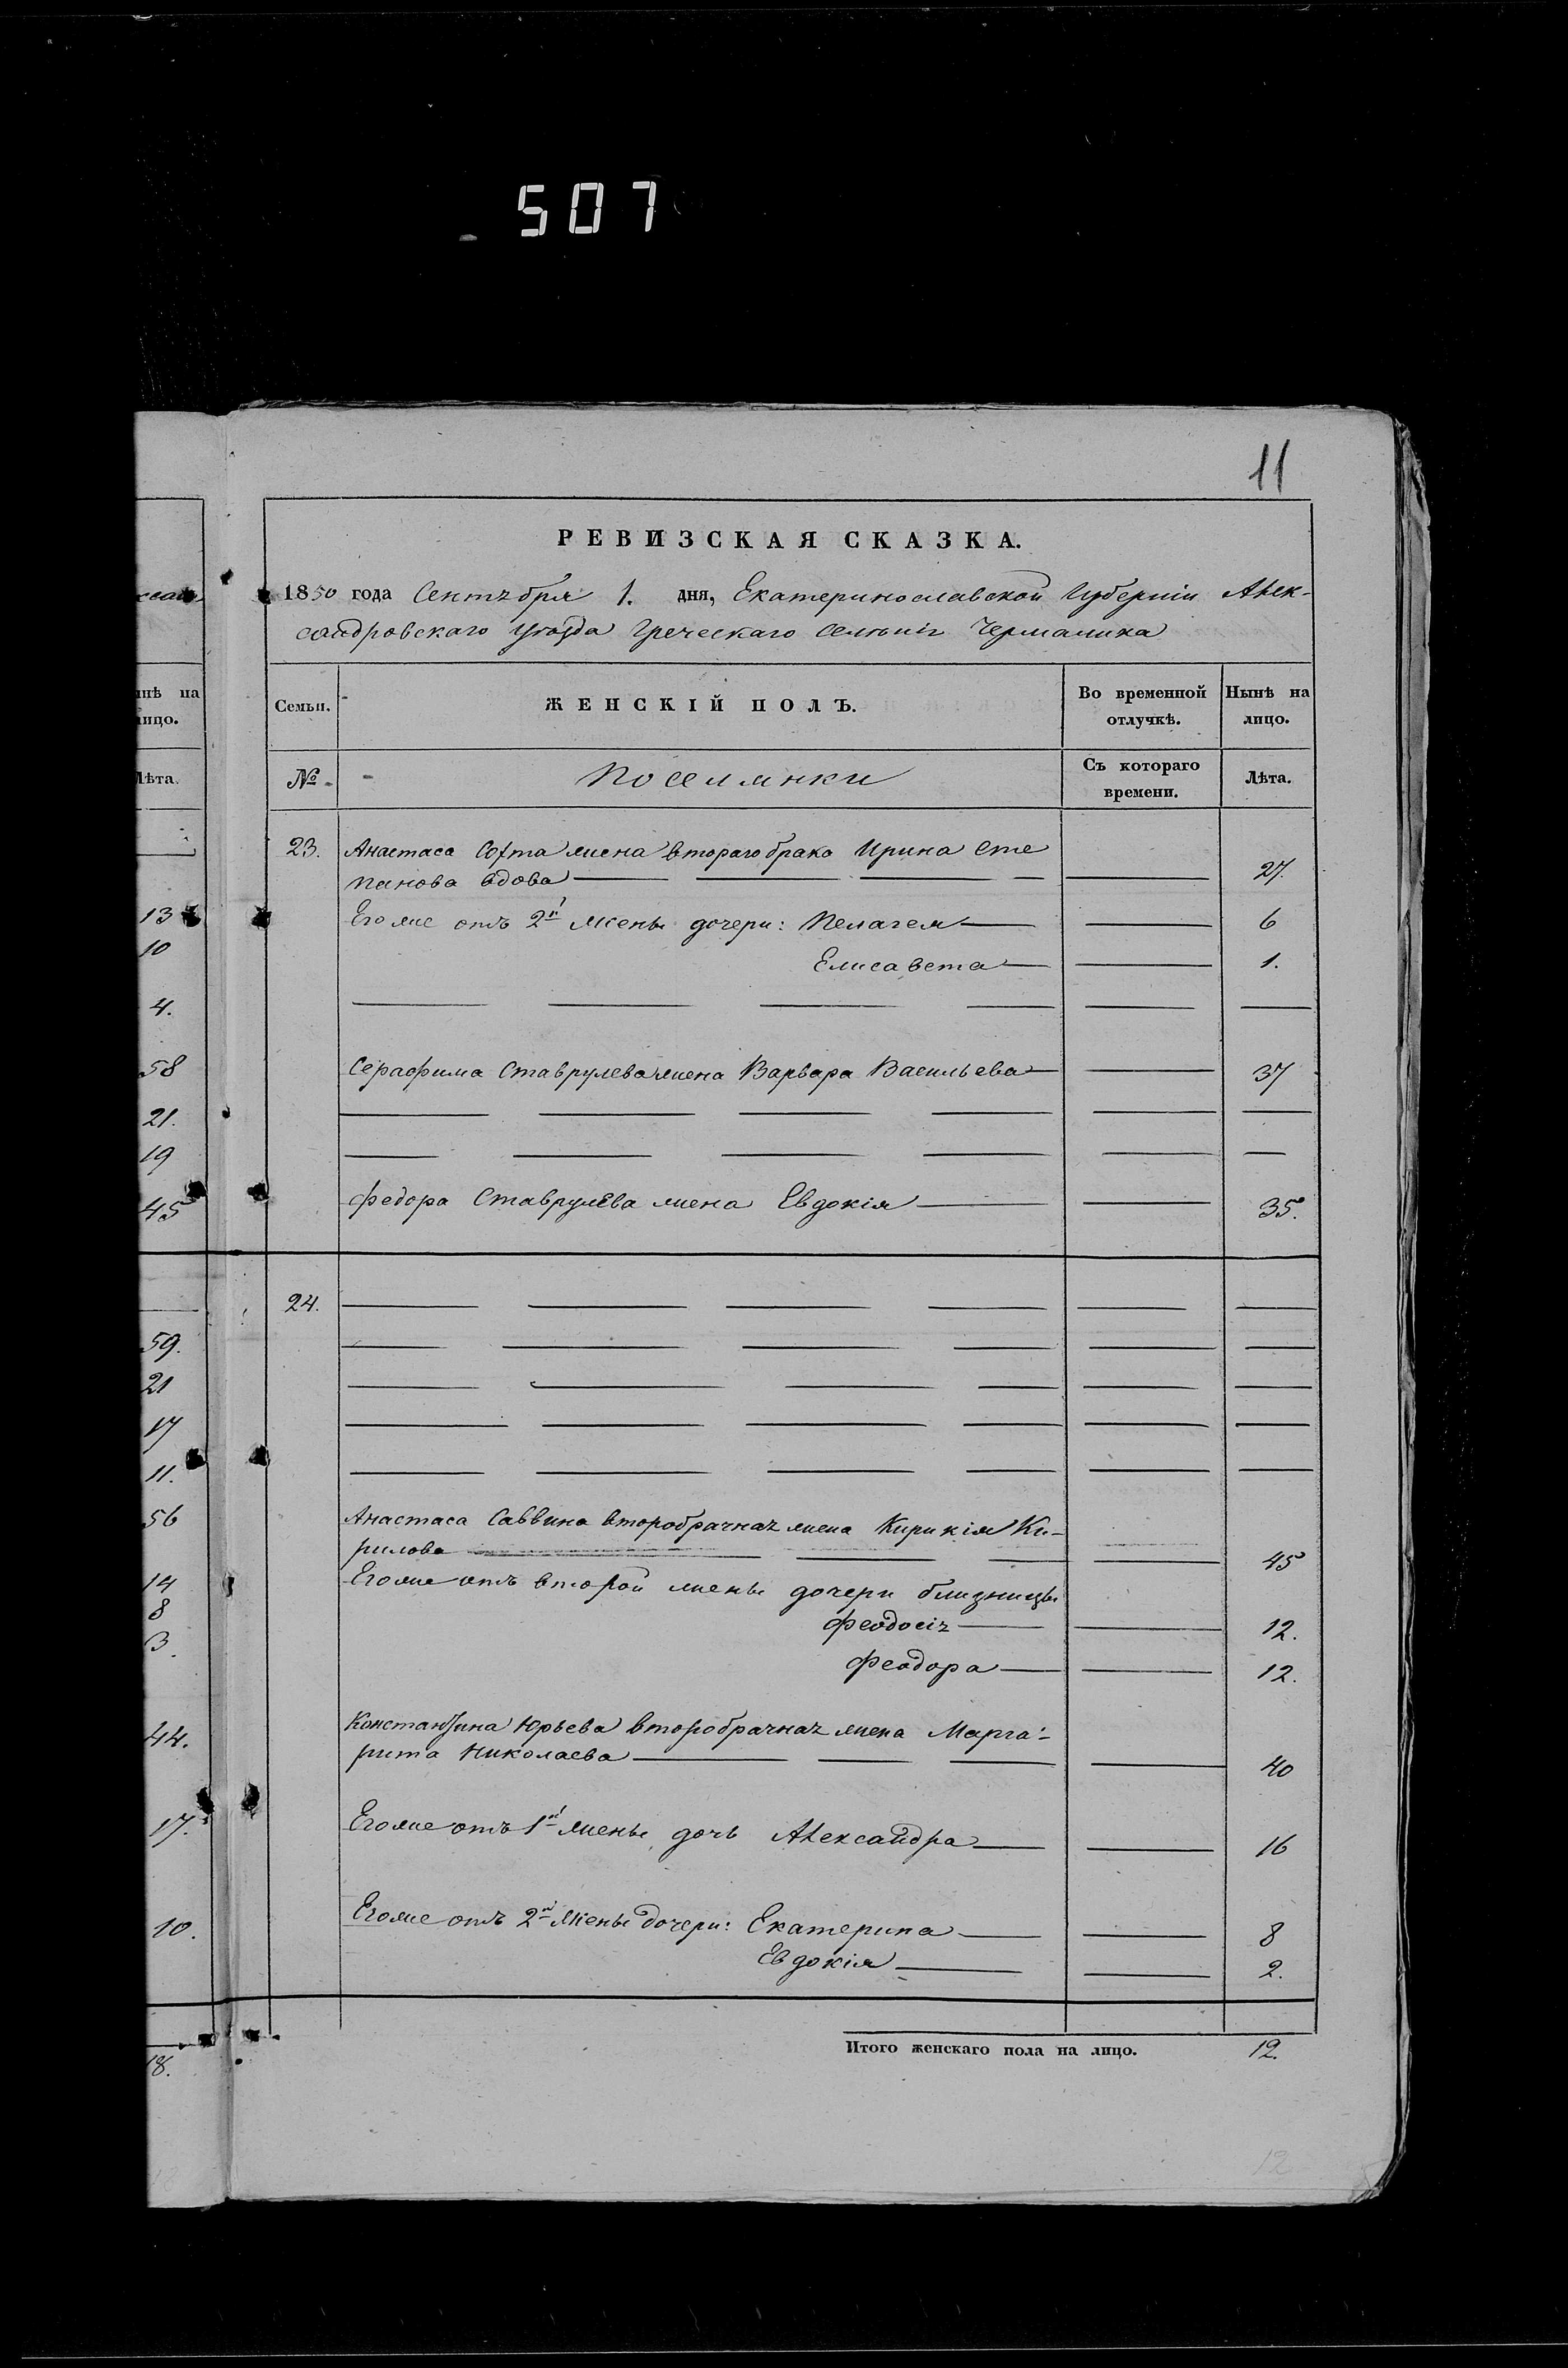 507
11
РЕВИЗСКАЯ СКАЗКА.
1850 года Сентября 1. дня, Екатеринославской Губерніи Алек-
сандровскаго уѣзда Греческаго селенія Чермалика
Семьи.
ЖЕНСКІЙ ПОЛЪ.
Во временной отлучкѣ.
Нынѣ на лицо.
№
Поселянки
Съ котораго времени.
Лѣта.
23. Анастаса Софта жена втораго брака Ирина Сте
панова вдова 27.
Его же отъ 2й жены дочери: Пелагея 6
Елисавета 1.
Серафима Ставрулева жена Варвара Васильева 37
Федора Ставрулева жена Евдокія 35.
24.
Анастаса Саввина второбрачная жена Кирикія Ки-
рилова 45
Его же отъ второй жены дочери близницы
Феодосія 12.
Феодора 12.
Константина Юрьева второбрачная жена Марга-
рита Николаева 40
Его же отъ 1й жены дочь Александра 16
Его же отъ 2й жены дочери: Екатерина 8
Евдокія 2.
Итого женскаго пола на лицо. 12.
12
нѣ на
лицо.
Лѣта.
13
10
4.
58
21.
19
45
59.
21
17
11.
56
14
8
3.
44.
17.
10.
18.